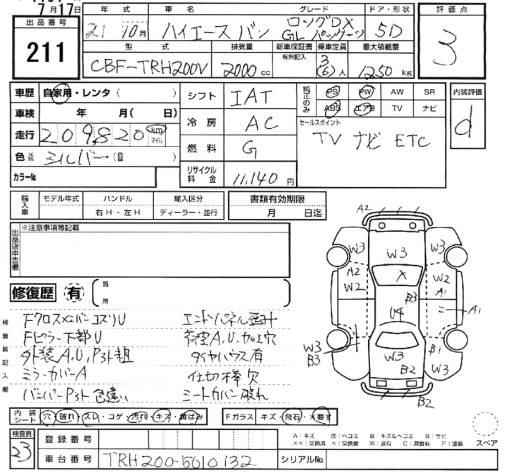 7月17日
出品番号 年式 車名 グレード ドア・形状 評価点
211 21年 10月 ハイエースバン ロングDX 5D 3
GLパッケージ
型式 排気量 新車保証書 乗車定員 最大積載量
有無記入
CBF-TRH200V 2000cc 3(6)人 1250kg
車歴 自家用・レンタ( ) シフト IAT 純正のみ PS PW AW SR 内装評価
車検 年 月(日) 冷房 AC ABS エアB TV ナビ d
走行 209820 km マイル セールスポイント
燃料 G TV ナビ ETC
色 シルバー(自
カラー№ リサイクル料金 11,140円
輸入車 モデル年式 ハンドル 輸入区分 書類有効期限
右H・左H ディーラー・並行 月 日迄
出品店申告欄 ※注意事項等記載
修復歴 有 箇所
検査員記入欄
FクロスメンバーコズリU
Fピラー下部U
外装A,U,Pヌケ粗
ミラーカバーA
バンパーPヌケ色違い
エンドパネル歪汁
荷室A,U,加工穴
タイヤハウス有
仕切棒欠
シートカバー破れ
A2
W3 W3
A2 X
W2 B3 A1 A1
U4
W3 B3 B1 W3
W2
B2
B2
内装シート 穴・破れ・スレ・コゲ・汚れ・キズ・黄ばみ Fガラス キズ・飛石・X要す
スペア
A:キズ U:凹ヘコミ B:キズ&ヘコミ S:サビ
××:交換済 X:交換要 W:波有 C:腐食有 P:塗装
検査員 23
登録番号
車台番号 TRH200-5010132 シリアル№